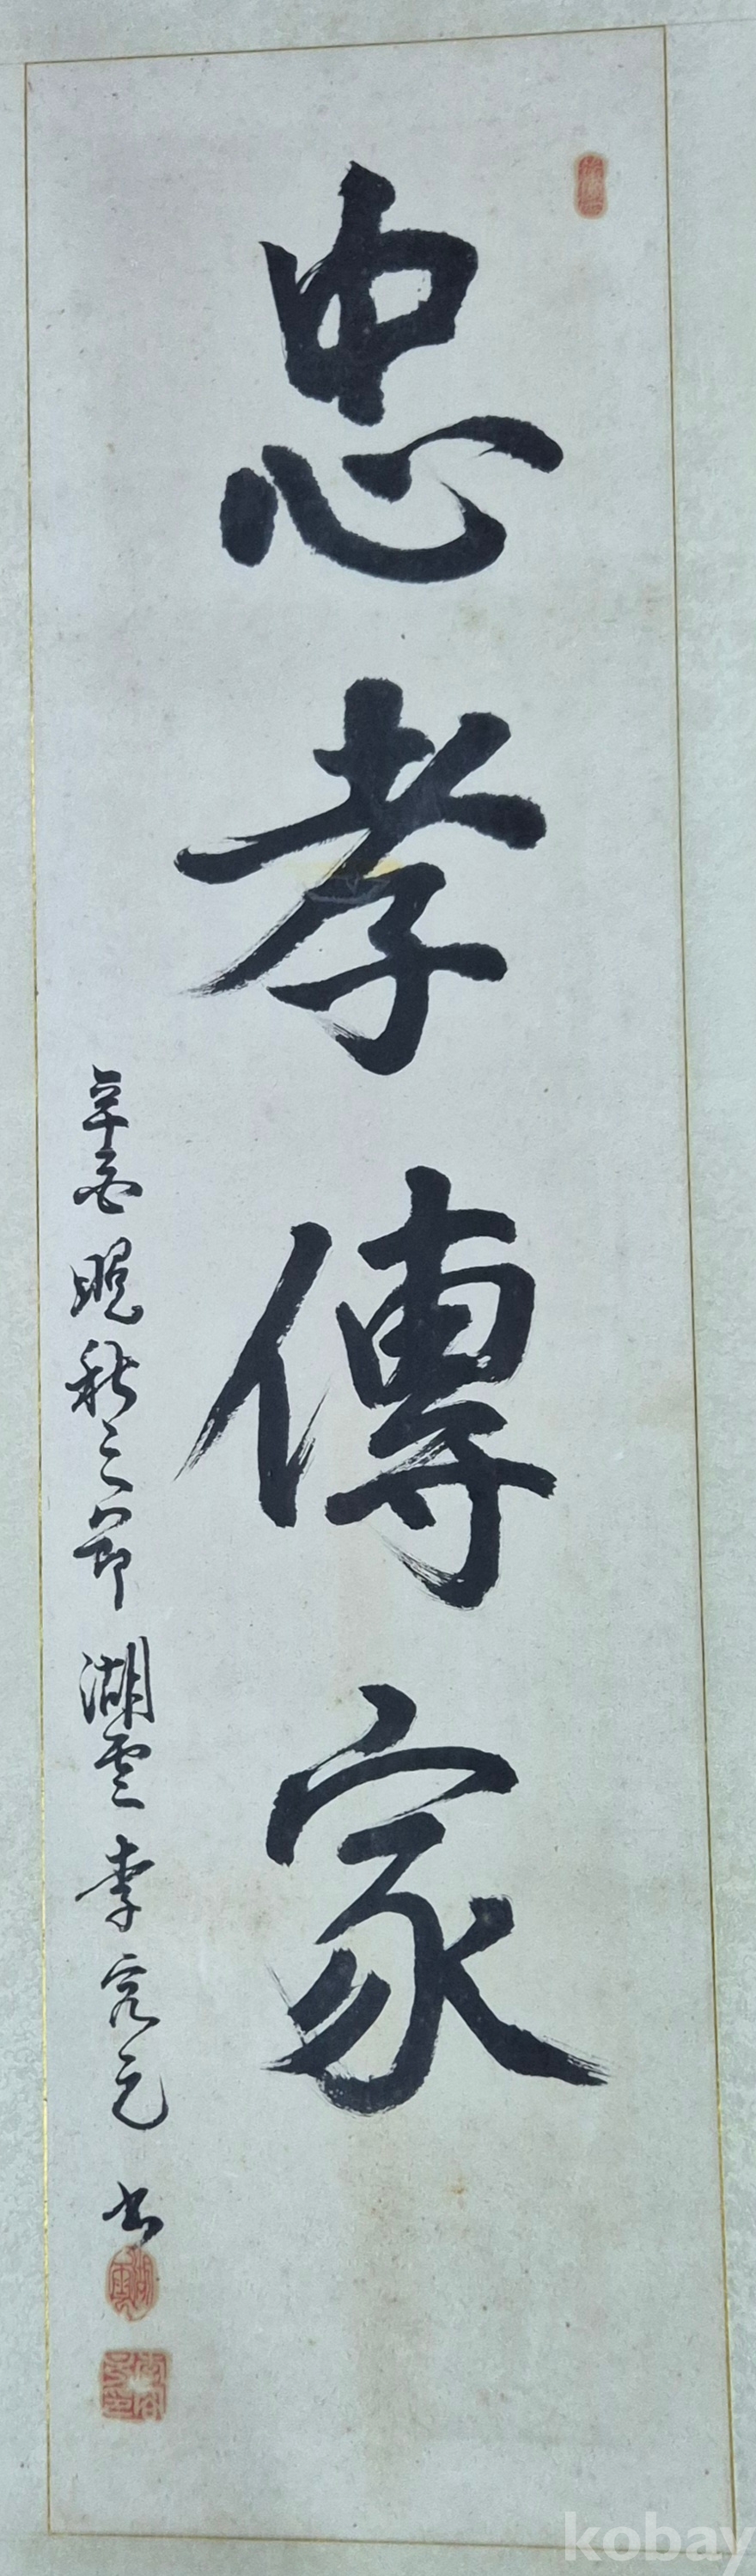 忠孝傳家
辛酉晩秋之節 湖雲 李容元 書
kobay